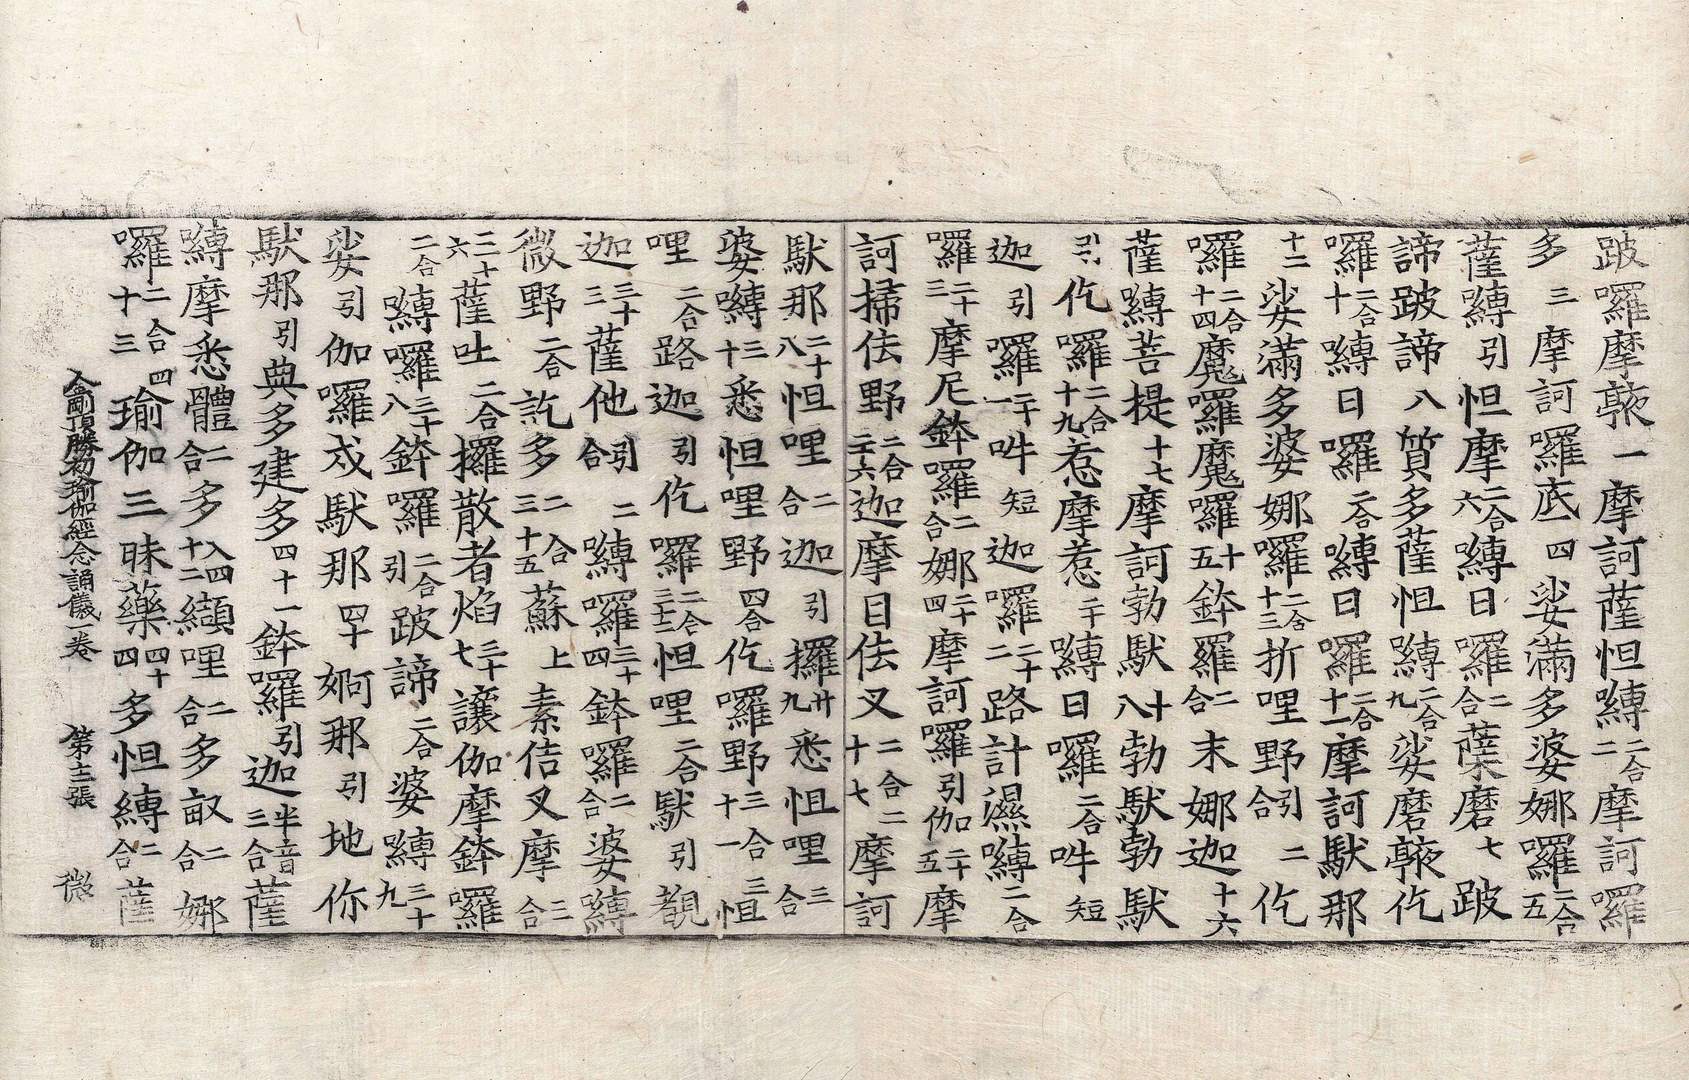 跛囉摩㮈一摩訶薩怛嚩二合二摩訶囉
多三摩訶囉底四娑滿多婆娜囉二合五
薩嚩引怛摩二合六嚩日囉二合薩磨七跛
諦跛諦八質多薩怛嚩二合九娑磨㮈仡
囉二合十嚩日囉二合嚩日囉二合十一摩訶馱那
十二娑滿多婆娜囉二合十三折哩野引二合仡
囉二合十四魔囉魔囉十五鉢羅二合末娜迦十六
薩嚩菩提十七摩訶勃馱十八勃馱勃馱
引仡囉二合十九惹摩惹二十嚩日囉二合吽短
迦引囉二十一吽短迦囉二十二路計濕嚩二合
囉二十三摩尼鉢囉二合娜二十四摩訶囉引伽二十五摩
訶掃佉野二合二十六迦摩目佉叉二合二十七摩訶
馱那二十八怛哩二合迦引攞廿九悉怛哩三合
婆嚩三十悉怛哩野四合仡囉野三合三十一怛
哩二合路迦引仡囉二合三十二怛哩二合馱引覩
迦三十三薩他引二合嚩囉三十四鉢囉二合婆嚩
微野二合訖多二合三十五蘇上素佶叉摩二合
三十六薩吐二合攞散者焰三十七讓伽摩鉢囉
二合嚩囉三十八鉢囉二合引跛諦二合婆嚩三十九
娑引伽囉戍馱那四十婀那引地你
馱那引典多建多四十一鉢囉引迦半音三合薩
嚩摩悉體二合多入四十二纈哩二合多㪇二合娜
囉二合四十三瑜伽三昧藥四十四多怛嚩二合薩
金剛頂勝初瑜伽經念誦儀一卷　第三張　微